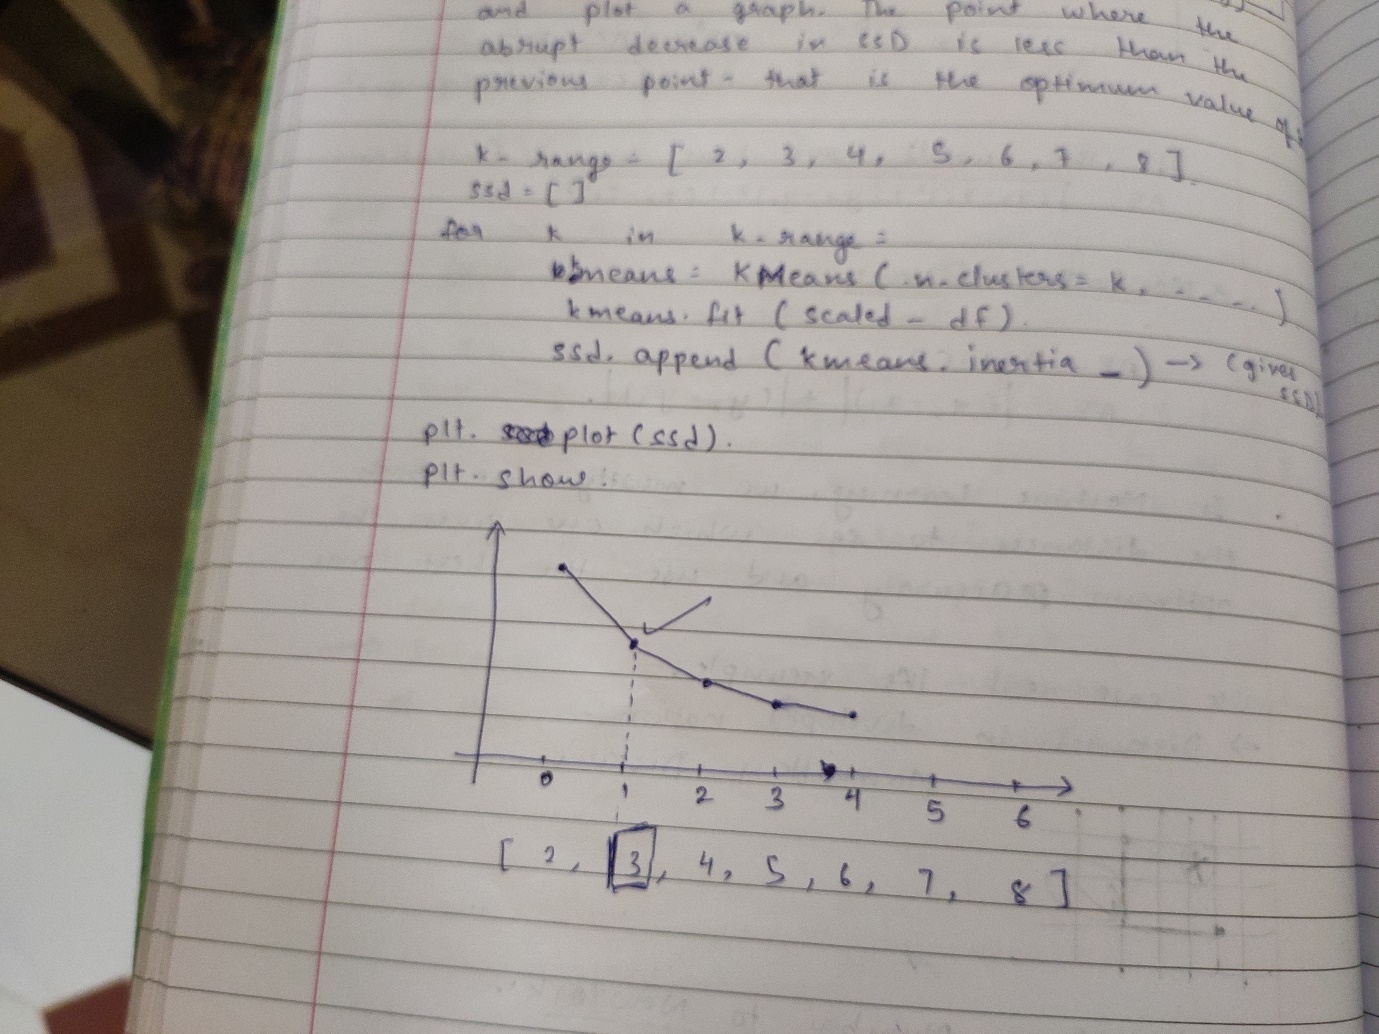 and plot a graph. The point where the
abrupt decrease in SSD is less than the
previous point - that is the optimum value of
k_range = [ 2, 3, 4, 5, 6, 7, 8 ]
ssd = [ ]
for k in k_range :
kmeans = KMeans ( n_clusters = k, - - - - )
kmeans. fit ( scaled _ df ).
ssd. append ( kmeans. inertia _ ) -> (gives
SSD)
plt. plot (ssd).
plt. show!
0 1 2 3 4 5 6
[ 2, 3, 4, 5, 6, 7, 8 ]